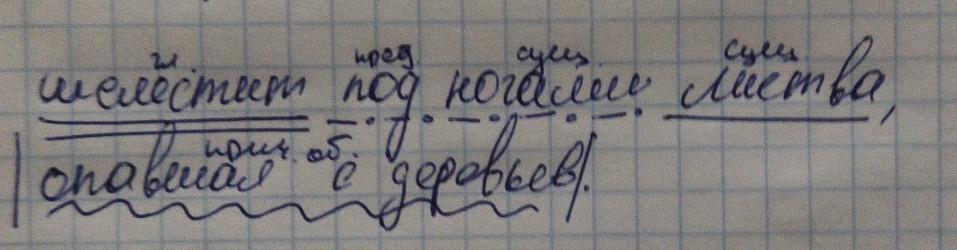 гл. пред. сущ. сущ.
шелестит под ногами листва,
прич. об.
|опавшая с деревьев|.